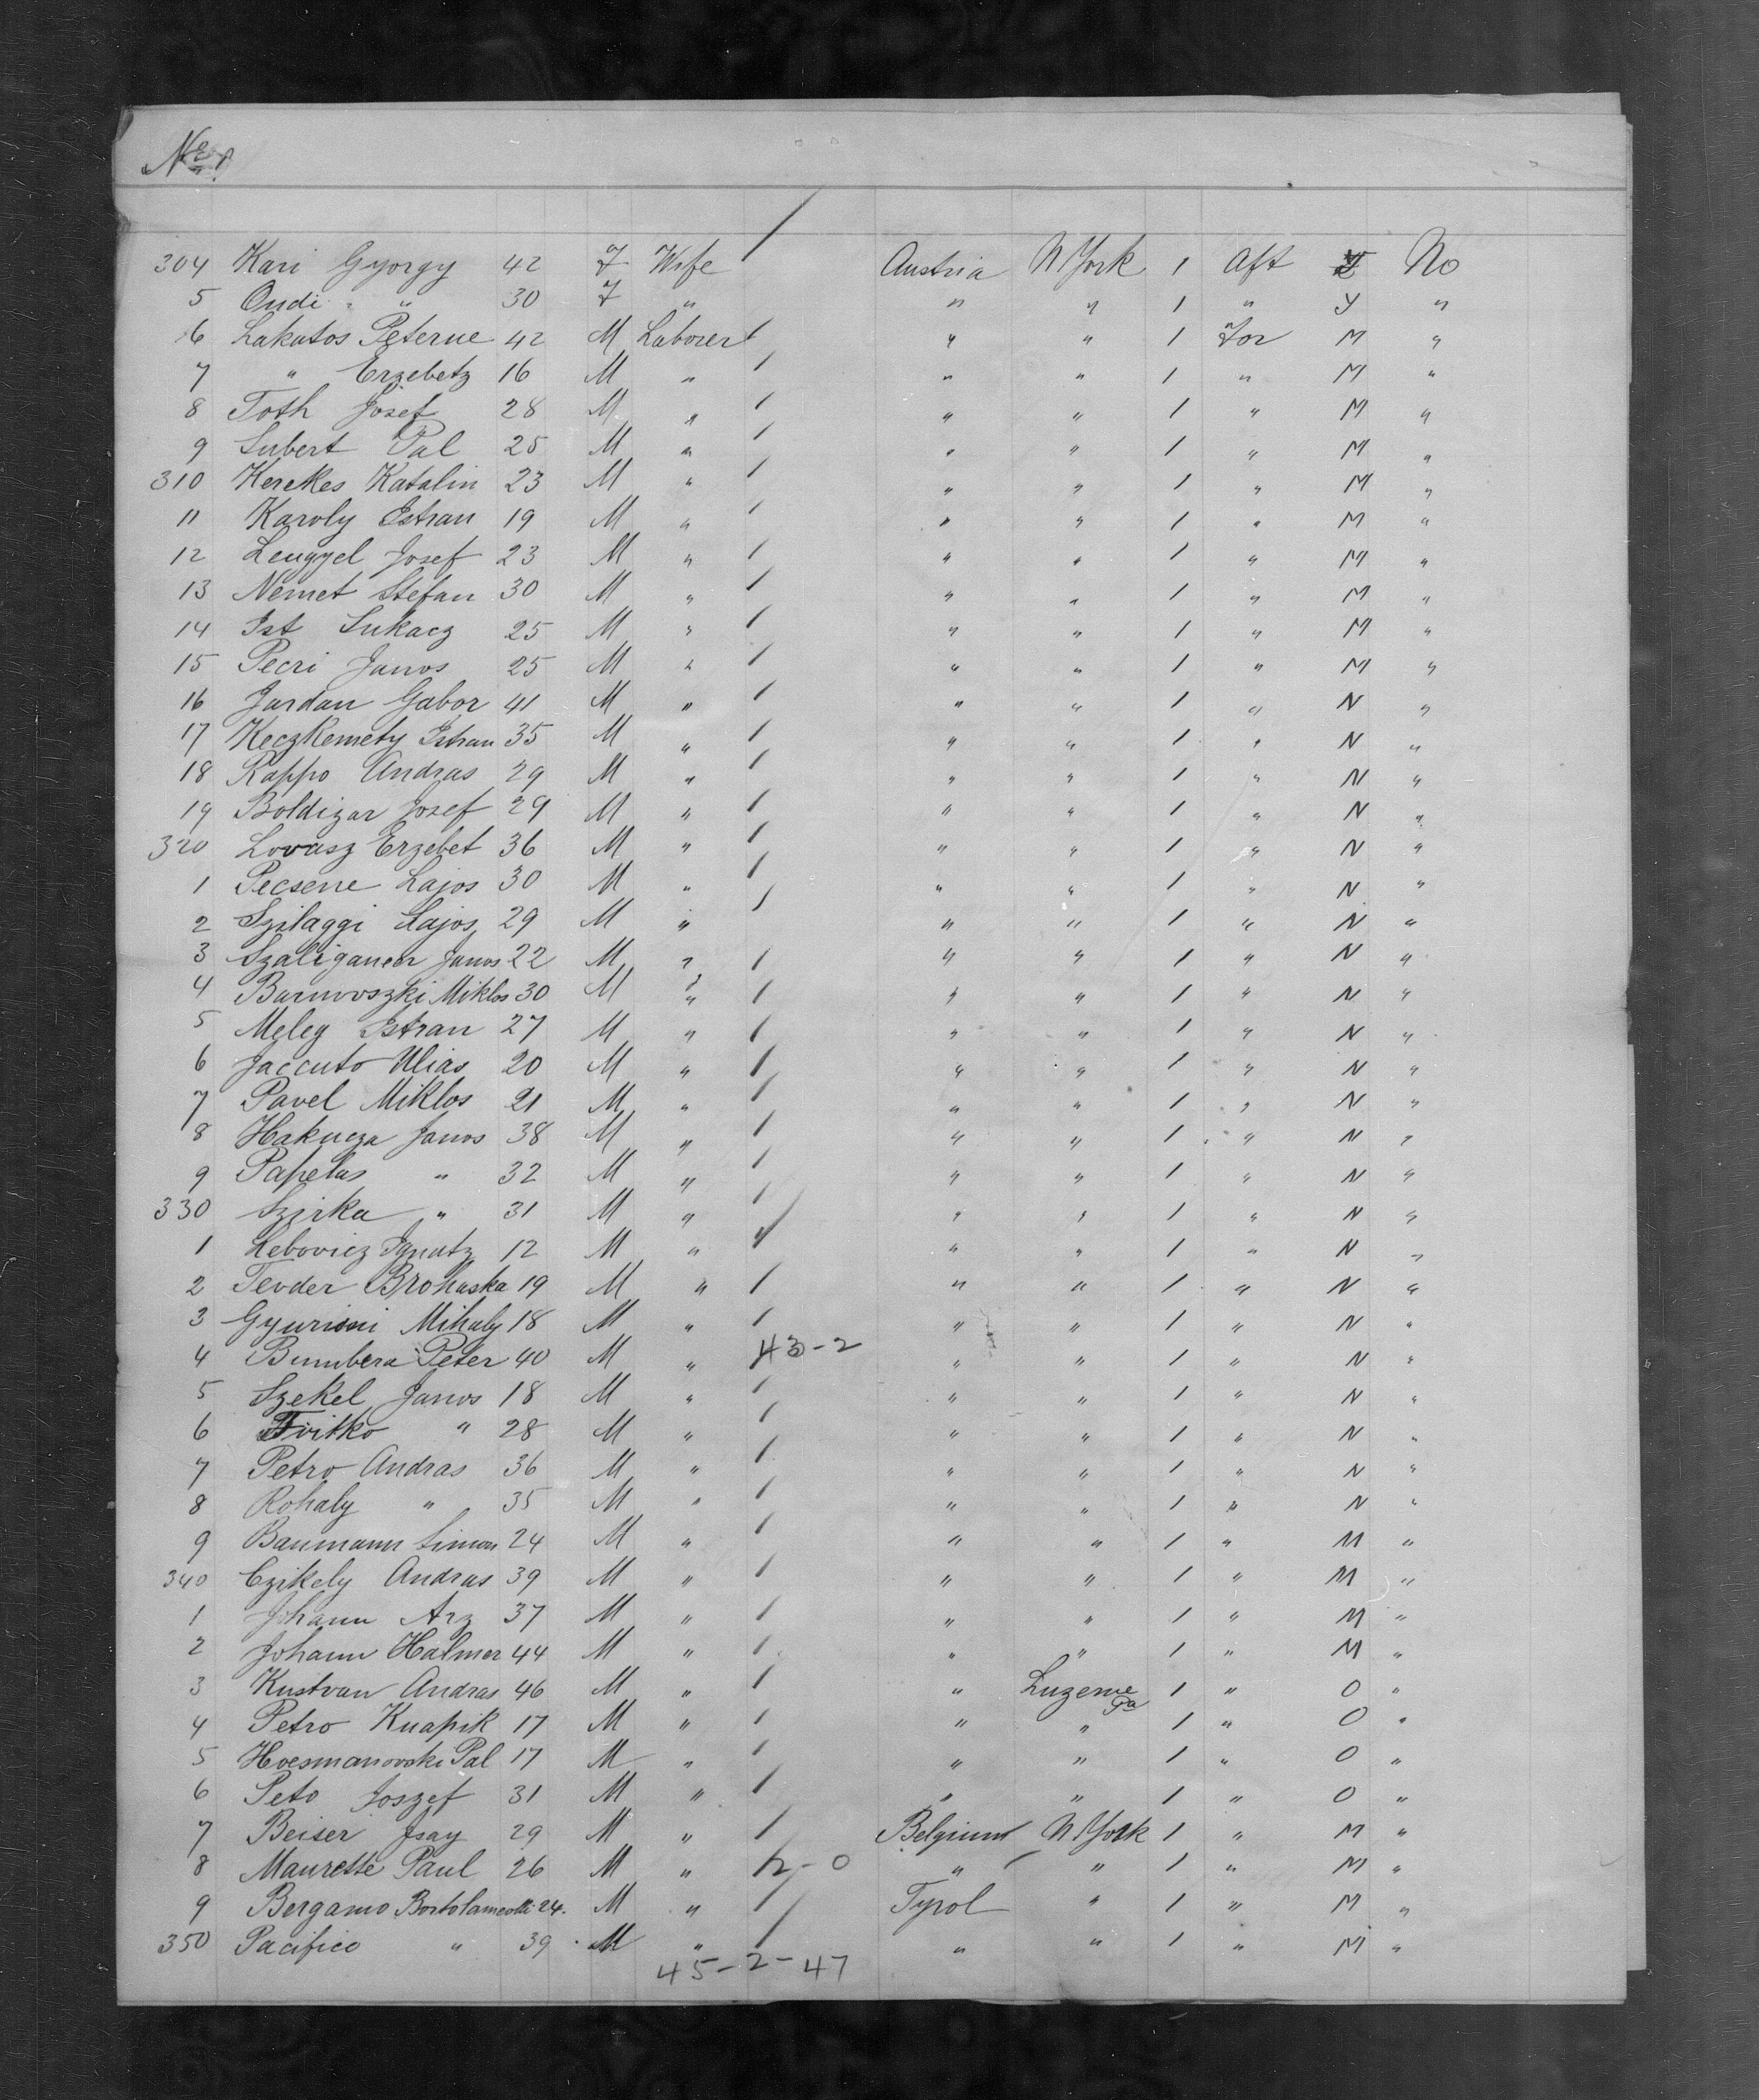 No 1
304 Kari Gyorgy 42 F Wife / Austria N York 1 Aft No
5 Ondi " " 30 F " " " 1 " Y "
6 Lakatos Peterne 42 M Laborer / " " 1 For M "
7 " Erzebetz 16 M " / " " 1 " M "
8 Toth Josef 28 M " / " " 1 " M "
9 Subert Pal 25 M " / " " 1 " M "
310 Kerekes Katalin 23 M " / " " 1 " M "
11 Karoly Estran 19 M " / " " 1 " M "
12 Lengyel Josef 23 M " / " " 1 " M "
13 Nemet Stefan 30 M " / " " 1 " M "
14 Ist Lukacz 25 M " / " " 1 " M "
15 Pecri Janos 25 M " / " " 1 " M "
16 Jardan Gabor 41 M " / " " 1 " N "
17 Keczkemety Istran 35 M " / " " 1 " N "
18 Rappo Andras 29 M " / " " 1 " N "
19 Boldizar Josef 29 M " / " " 1 " N "
320 Lovasz Erzebet 36 M " / " " 1 " N "
1 Pecsene Lajos 30 M " / " " 1 " N "
2 Szilaggi Lajos 29 M " / " " 1 " N "
3 Szaliganer Janos 22 M " / " " 1 " N "
4 Barnovszki Miklos 30 M " / " " 1 " N "
5 Meleg Istran 27 M " / " " 1 " N "
6 Jaccuto Ulias 20 M " / " " 1 " N "
7 Pavel Miklos 21 M " / " " 1 " N "
8 Hakucza Janos 38 M " / " " 1 " N "
9 Papelas " 32 M " / " " 1 " N "
330 Szirka " 31 M " / " " 1 " N "
1 Lebovicz Ignatz 12 M " / " " 1 " N "
2 Tevder Brohaska 19 M " / " " 1 " N "
3 Gyurisni Mihaly 18 M " / " " 1 " N "
4 Bumbera Peter 40 M " 43-2 " " 1 " N "
5 Szekel Janos 18 M " / " " 1 " N "
6 Fvitko " 28 M " / " " 1 " N "
7 Petro Andras 36 M " / " " 1 " N "
8 Rohaly " 35 M " / " " 1 " N "
9 Baumann Simon 24 M " / " " 1 " M "
340 Czikely Andras 39 M " / " " 1 " M "
1 Johann Arz 37 M " / " " 1 " M "
2 Johann Halmer 44 M " / " " 1 " M "
3 Kustvan Andras 46 M " / " Luzerne Pa 1 " O "
4 Petro Knapik 17 M " / " " 1 " O "
5 Hvesmanovski Pal 17 M " / " " 1 " O "
6 Peto Joszef 31 M " / " " 1 " O "
7 Beiser Isay 29 M " / Belgium N York 1 " M "
8 Maurette Paul 26 M " 2-0 " " 1 " M "
9 Bergamo Bortolameolli 24. M " / Tyrol " 1 " M "
350 Pacifico " 39 M " / " " 1 " M "
45-2-47